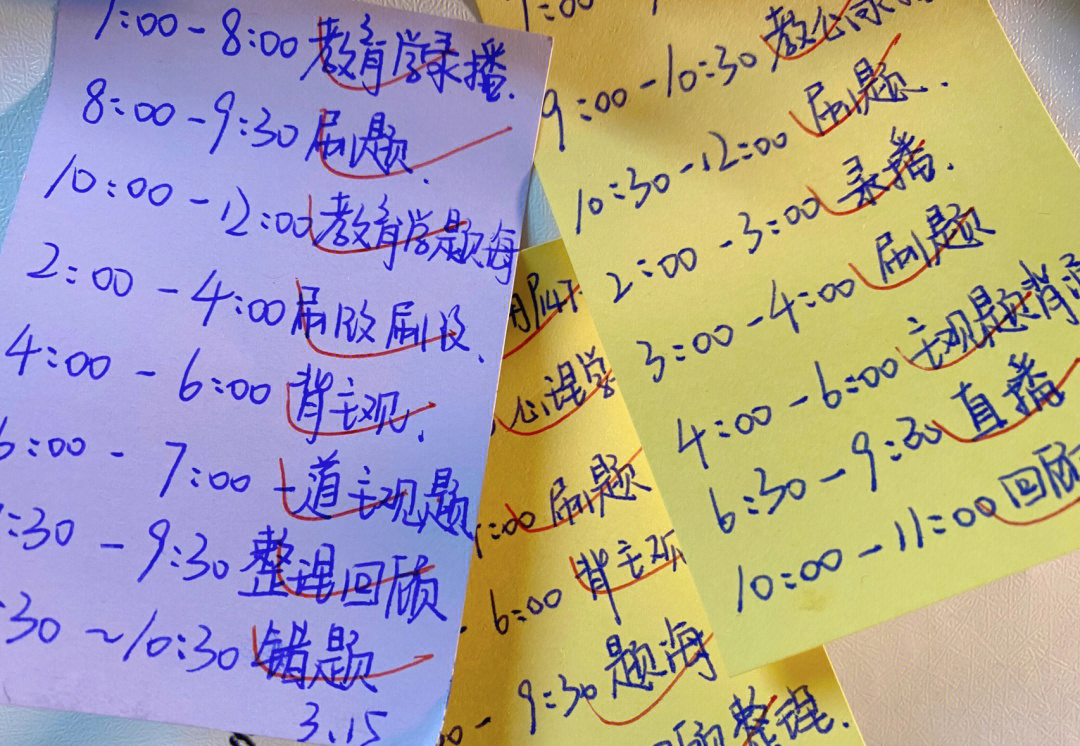 7:00-8:00 教育学录播.
8:00-9:30 刷题.
10:00-12:00 教育学题海
2:00-4:00 刷改刷改.
4:00-6:00 背主观.
6:00-7:00 一道主观题
:30-9:30 整理回顾
:30~10:30 错题
3.15
:00
9:00-10:30 教公录
10:30-12:00 刷题.
2:00-3:00 录播.
3:00-4:00 刷题
4:00-6:00 主观题背
6:30-9:30 直播
10:00-11:00 回顾
心理学
:00 刷题
- 6:00 背主观
00- 9:30 题海
回顾整理.